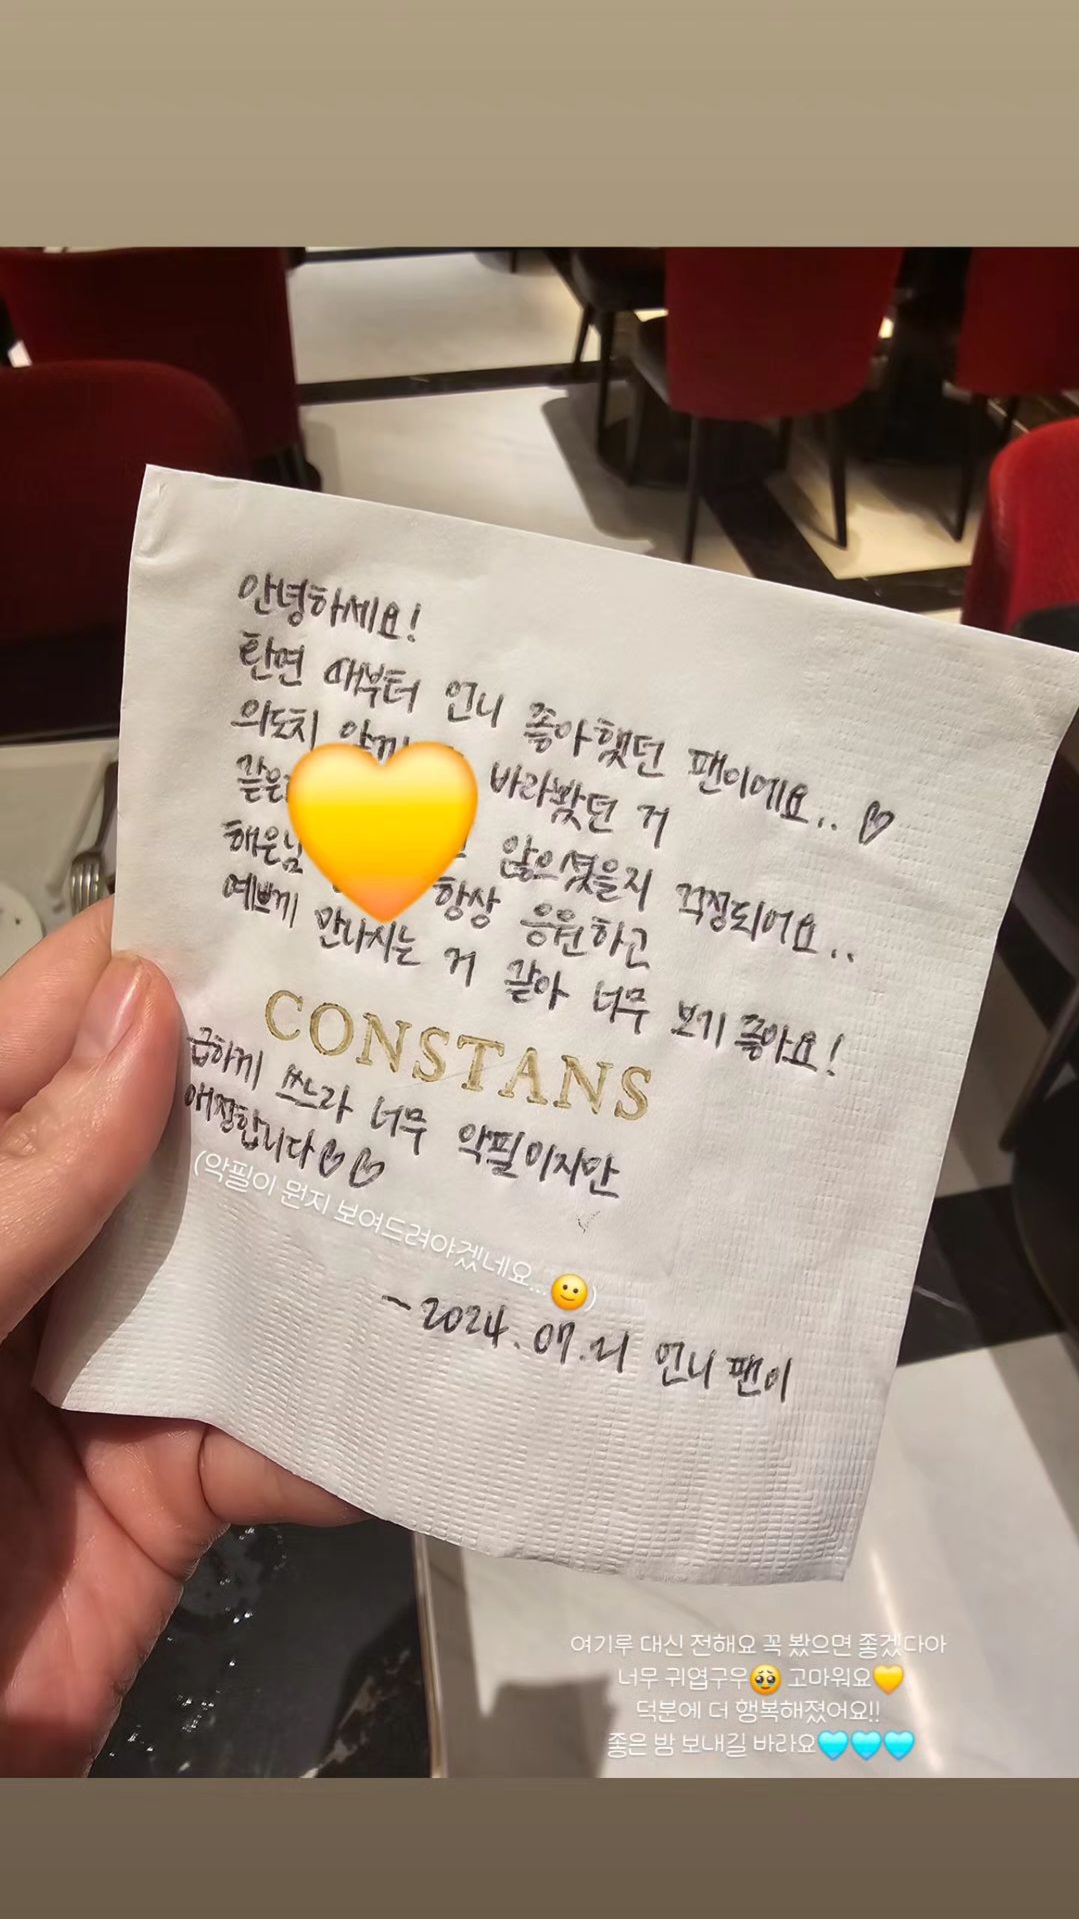 안녕하세요!
탄연 때부터 언니 좋아했던 팬이에요.. ♡
의도치 않게 바라봤던 거
같은 않으셨을지 걱정되어요..
해은님 항상 응원하고
예쁘게 만나시는 거 같아 너무 보기 좋아요!
CONSTANS
급하게 쓰느라 너무 악필이지만
애정합니다♡♡
(악필이 뭔지 보여드려야겠네요...🙂)
~2024.07.21 언니 팬이
여기루 대신 전해요 꼭 봤으면 좋겠다아
너무 귀엽구우🥹 고마워요💛
덕분에 더 행복해졌어요!!
좋은 밤 보내길 바라요🩵🩵🩵